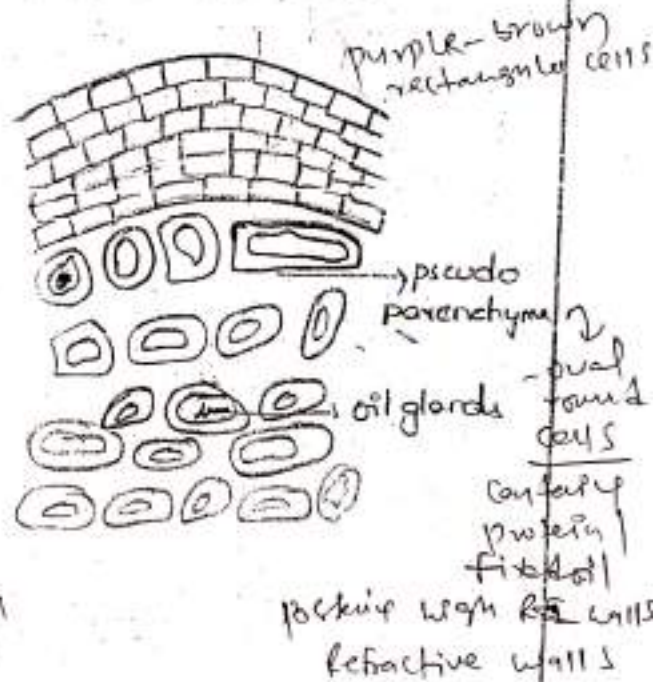 purple-brown
rectangular cells
pseudo
parenchyma
-oval
round
cells
oil glands
Containing
protein /
fixed oil
walls
Refractive walls